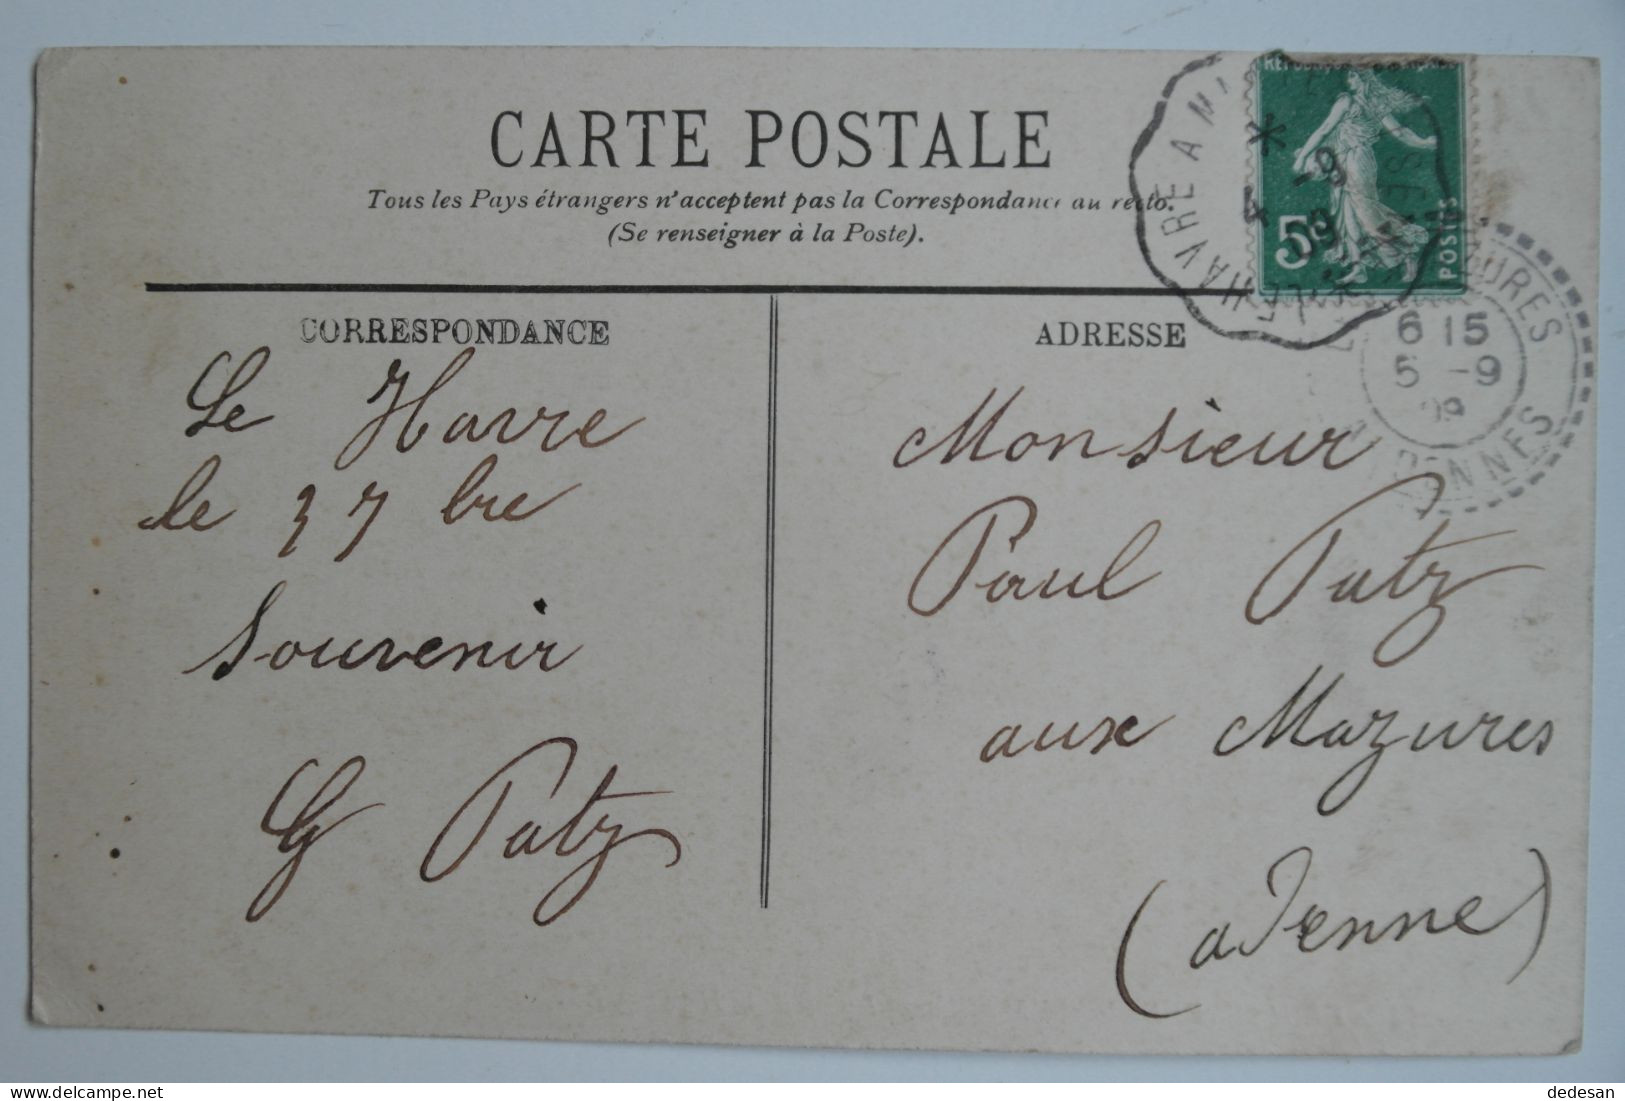 CARTE POSTALE
Tous les Pays étrangers n'acceptent pas la Correspondance au recto.
(Se renseigner à la Poste).
CORRESPONDANCE
Le Havre
le 3 7 bre
Souvenir
G Patz
ADRESSE
Monsieur
Paul Patz
aux Mazures
(aDenne)
5c
POSTES
LE HAVRE A
4 -9
09
MAZURES
6 15
5 -9
09
ARDENNES
dedesan